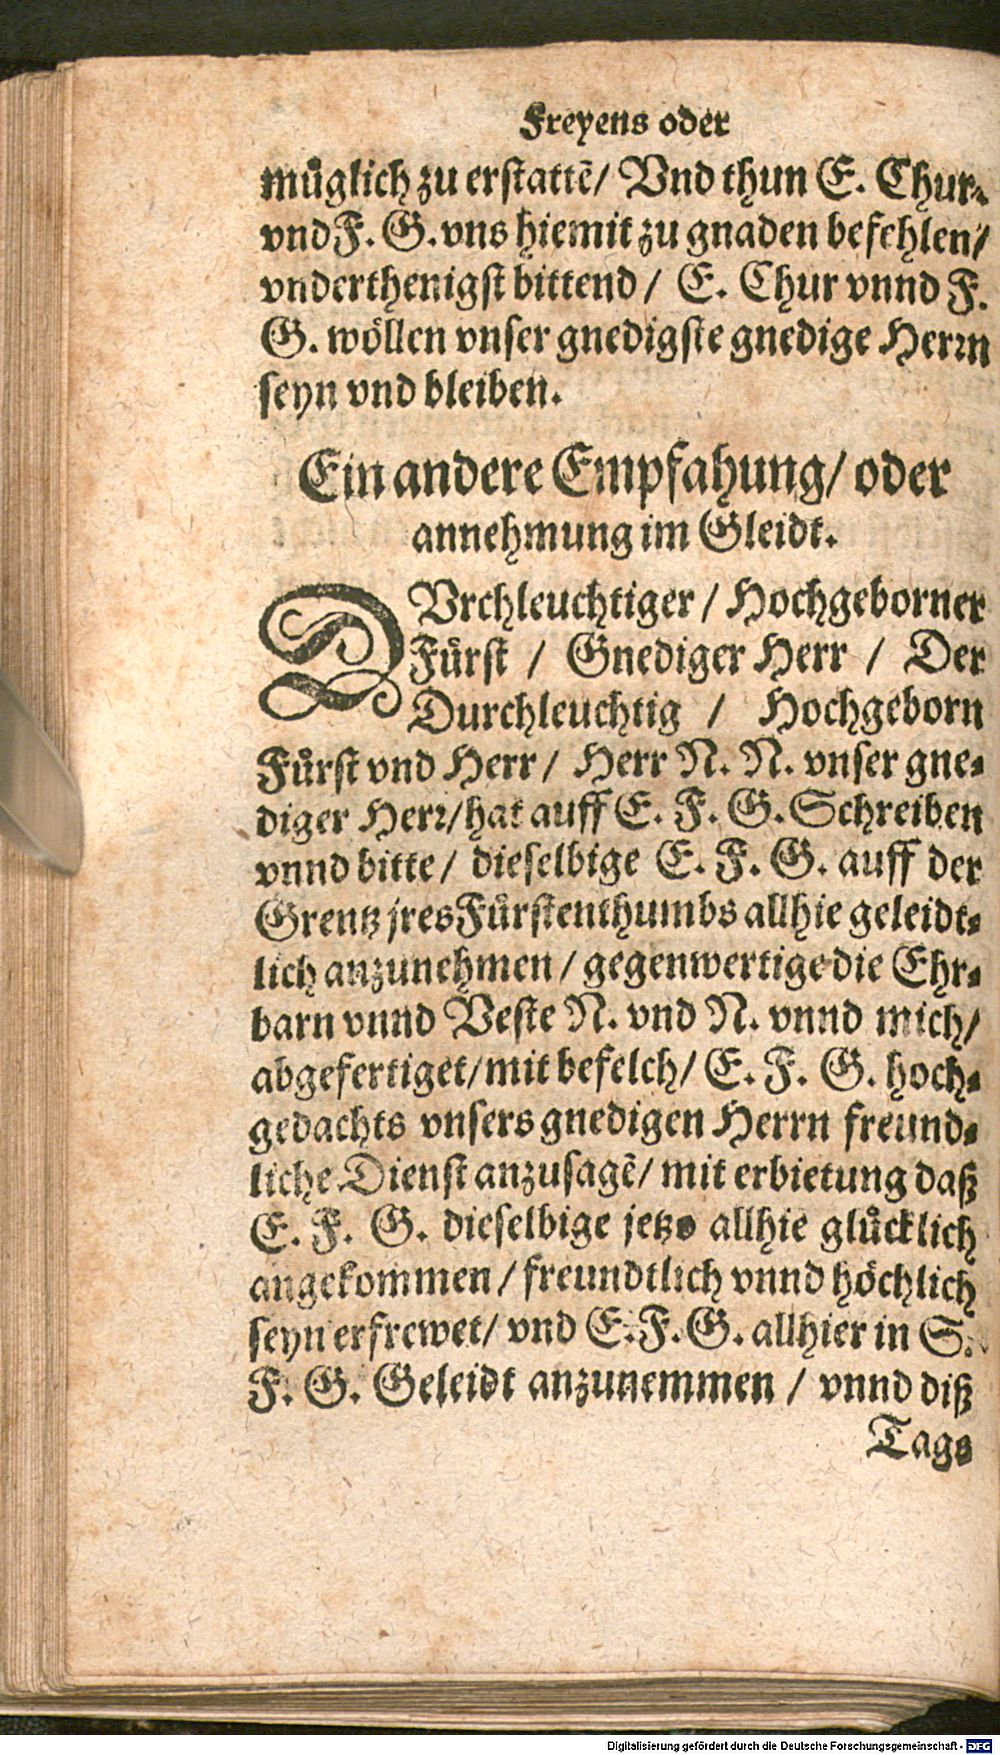 Freyens oder
müglich zu erstattē/ Vnd thun E. Chur-
vnd F. G. vns hiemit zu gnaden befehlen/
vnderthenigst bittend / E. Chur vnnd F.
G. wöllen vnser gnedigste gnedige Herrn
seyn vnd bleiben.
Ein andere Empfahung/ oder
annehmung im Gleidt.
DVrchleuchtiger / Hochgeborner
Fürst / Gnediger Herr / Der
Durchleuchtig / Hochgeborn
Fürst vnd Herr / Herr N. N. vnser gne-
diger Herr/ hat auff E. F. G. Schreiben
vnnd bitte / dieselbige E. F. G. auff der
Grentz jres Fürstenthumbs allhie geleidt-
lich anzunehmen / gegenwertige die Ehr-
barn vnnd Veste N. vnd N. vnnd mich/
abgefertiget/ mit befelch/ E. F. G. hoch-
gedachts vnsers gnedigen Herrn freund-
liche Dienst anzusagē/ mit erbietung daß
E. F. G. dieselbige jetzo allhie glücklich
angekommen / freundtlich vnnd höchlich
seyn erfrewet/ vnd E. F. G. allhier in S.
F. G. Geleidt anzunemmen / vnnd diß
Tags
Digitalisierung gefördert durch die Deutsche Forschungsgemeinschaft - DFG